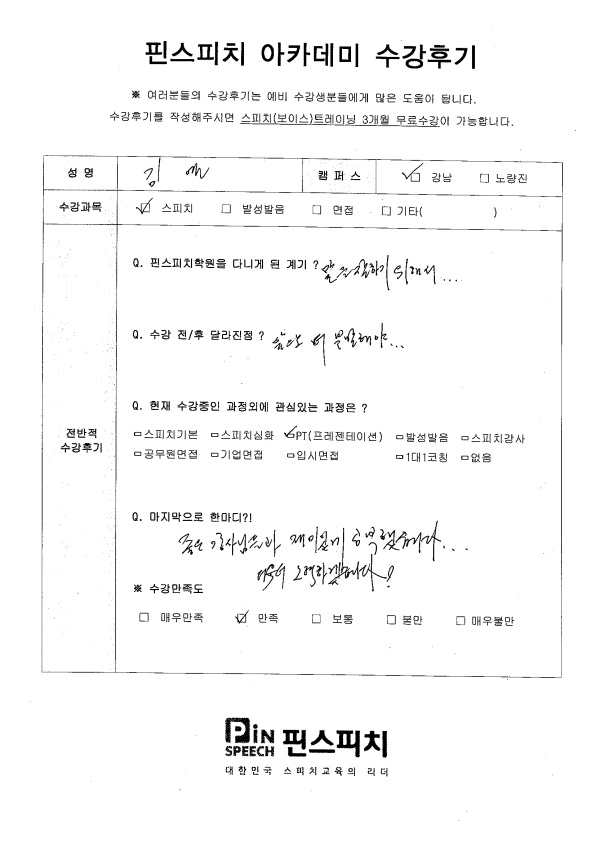 핀스피치 아카데미 수강후기
※ 여러분들의 수강후기는 예비 수강생분들에게 많은 도움이 됩니다.
수강후기를 작성해주시면 스피치(보이스)트레이닝 3개월 무료수강이 가능합니다.
성 명 김 캠 퍼 스 ☑ 강남 □ 노량진
수강과목 ☑ 스피치 □ 발성발음 □ 면접 □ 기타( )
Q. 핀스피치학원을 다니게 된 계기 ? 말을 잘하기 위해서...
Q. 수강 전/후 달라진점 ? 더
Q. 현재 수강중인 과정외에 관심있는 과정은 ?
전반적
수강후기
□스피치기본 □스피치심화 ☑PT(프레젠테이션) □발성발음 □스피치강사
□공무원면접 □기업면접 □입시면접 □1대1코칭 □없음
Q. 마지막으로 한마디?!
좋은 강사님들과 재미있게 수업했습니다...
더 노력하겠습니다!
※ 수강만족도
□ 매우만족 ☑ 만족 □ 보통 □ 불만 □ 매우불만
PiN
SPEECH 핀스피치
대한민국 스피치교육의 리더